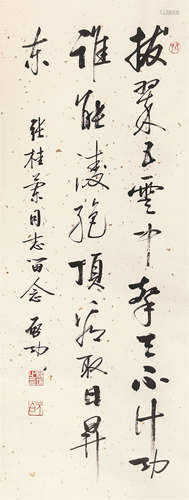 拔翠五云中擎天不计功
谁能凌绝顶看取日昇
东
张桂兰同志留念 启功